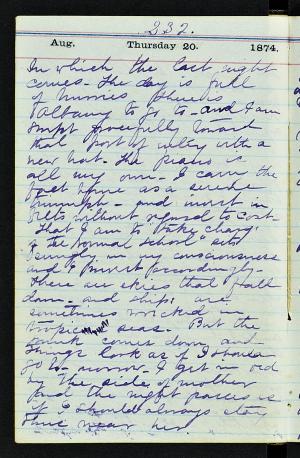 232.
Aug. Thursday 20. 1874.
In which the last night
comes - the day is full
of hurries. There is
Albany to go to - and I am
swept forcefully toward
that port of entry with a
new hat. The piano is
all my own - I carry the
fact home as a serene
triumph - and invest in
belts without regard to cost
That I am to "take charge"
in the Normal School sits
smugly in my consciousness
and I invest accordingly -
There are skies that fall
down - and ships are
sometimes wrecked in
tropical seas. But the
trunk comes down and
things look as if I should
go to-morrow. I get in bed
by the side of mother
and the night passes is
if I should always stay
near her.